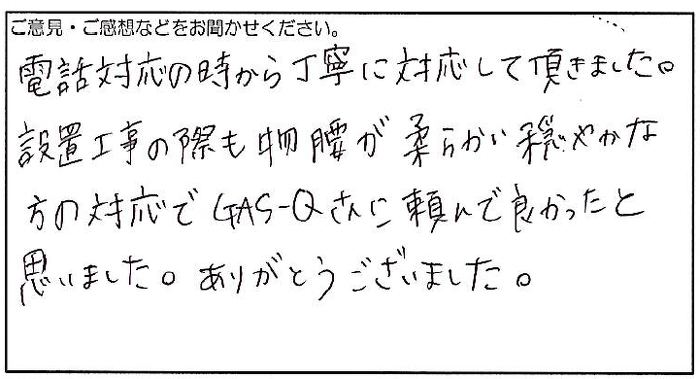 ご意見・ご感想などをお聞かせください。
電話対応の時から丁寧に対応して頂きました。
設置工事の際も物腰が柔らかい穏やかな
方の対応でGAS-Qさんに頼んで良かったと
思いました。ありがとうございました。